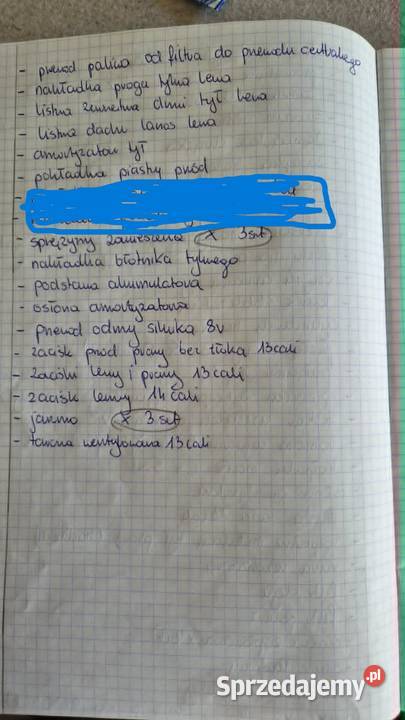 - przewod paliwa od filtra do przewodu centralnego
- nakładka progu tylna lewa
- listwa zewnetrzna drzwi tył lewa
- listwa dachu lanos lewa
- amortyzator tył
- podkładka piasty przód
- sprężyny zawieszenia x 3szt
- nakładka błotnika tylnego
- podstawa akumulatora
- osłona amortyzatora
- przewod odmy silnika 8v
- zacisk przod prawy bez tłoka 13cali
- zaciski lewy i prawy 13 cali
- zacisk lewy 14 cali
- jarzmo x 3 szt
- tarcza wentylowana 13 cali
Sprzedajemy.pl